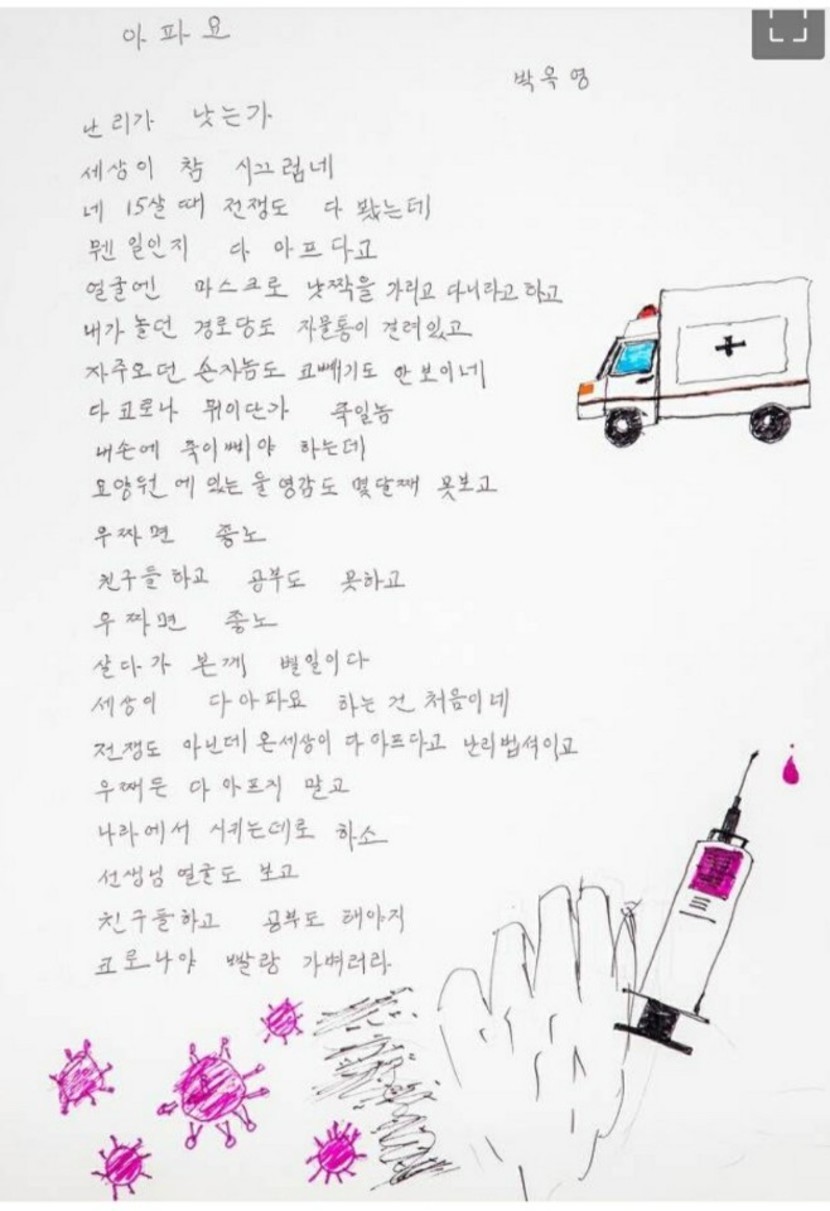 아파요
박옥영
난리가 낫는가
세상이 참 시끄럽네
네 15살 때 전쟁도 다 봤는데
뭔 일인지 다 아프다고
얼굴엔 마스크로 낮짝을 가리고 다니라고 하고
내가 놀던 경로당도 자물통이 걸려있고
자주오던 손자놈도 코빼기도 안 보이네
다 코로나 뭐이단가 죽일놈
내손에 죽이삐야 하는데
요양원에 있는 울 영감도 몇달째 못보고
우짜면 좋노
친구들하고 공부도 못하고
우짜면 좋노
살다가 본께 별일이다
세상이 다아파요 하는건 처음이네
전쟁도 아닌데 온세상이 다아프다고 난리법석이고
우째든 다 아프지 말고
나라에서 시키는데로 하소
선생님 얼굴도 보고
친구들하고 공부도 해야지
코로나야 빨랑 가벼려라